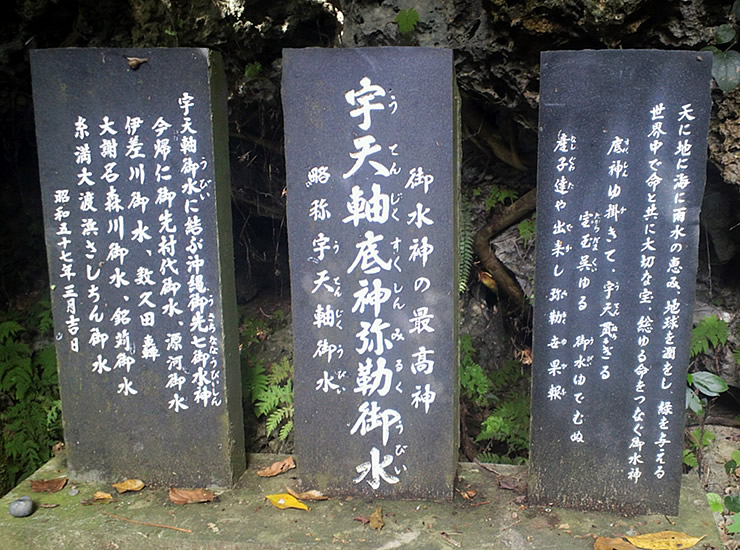 天に地に海に雨水の恵み、地球を潤をし 緑を与える
世界中で命と共に大切な宝、総ゆる命をつなぐ御水神
底神ゆ掛きて、宇天貫ぎる
宝玉呉ゆる 御水ゆでむぬ
産子達や出来し弥勒世果報
御水神の最高神
宇天軸底神弥勒御水
うてんじくすくしんみるくうびい
略称宇天軸御水
うてんじくうびい
宇天軸御水に結ぶ沖縄御先七御水神
今帰仁御先村代御水、源河御水
伊差川御水、数久田轟
大謝名森川御水、銘苅御水
糸満大渡浜さしちん御水
昭和五十七年三月吉日